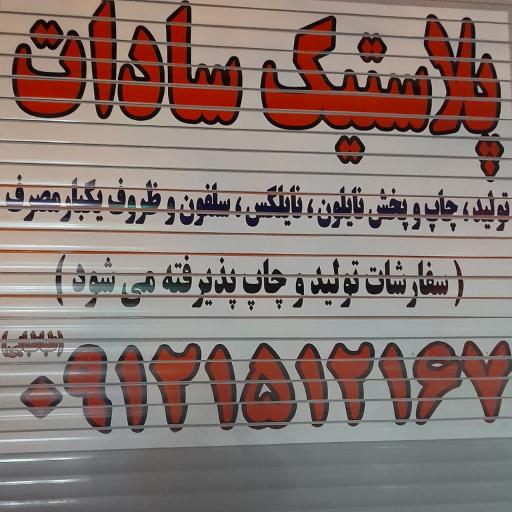 پلاستیک سادات
تولید ، چاپ و پخش نایلون ، نایلکس ، سلفون و ظروف یکبار مصرف
( سفارشات تولید و چاپ پذیرفته می شود )
۰۹۱۲۱۵۱۲۱۶۷ (طباطبایی)